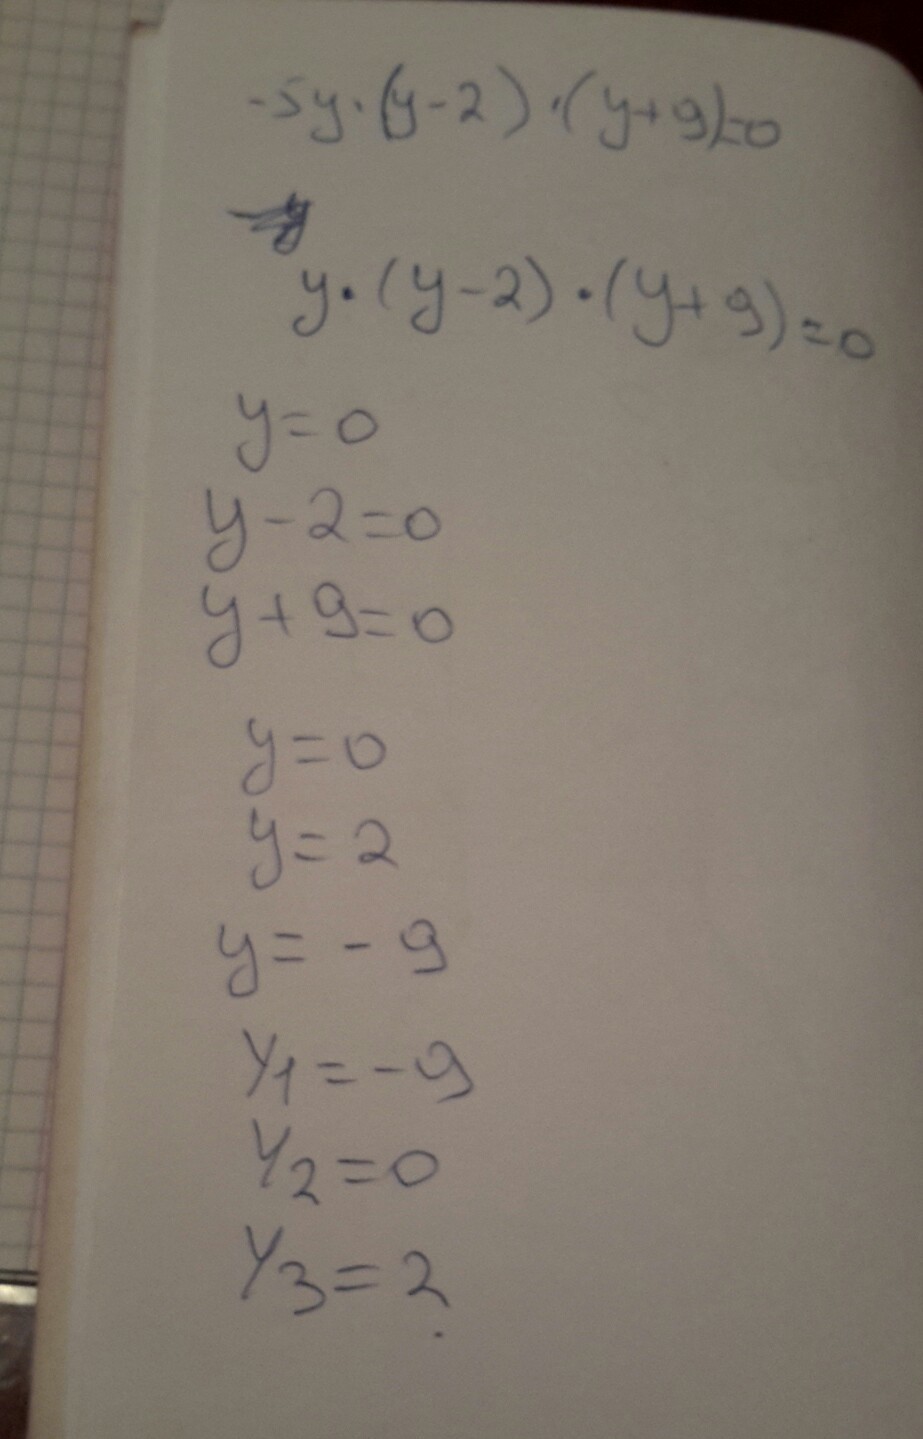 -5y·(y-2)·(y+9)=0
y·(y-2)·(y+9)=0
y=0
y-2=0
y+9=0
y=0
y=2
y=-9
Y1=-9
Y2=0
Y3=2